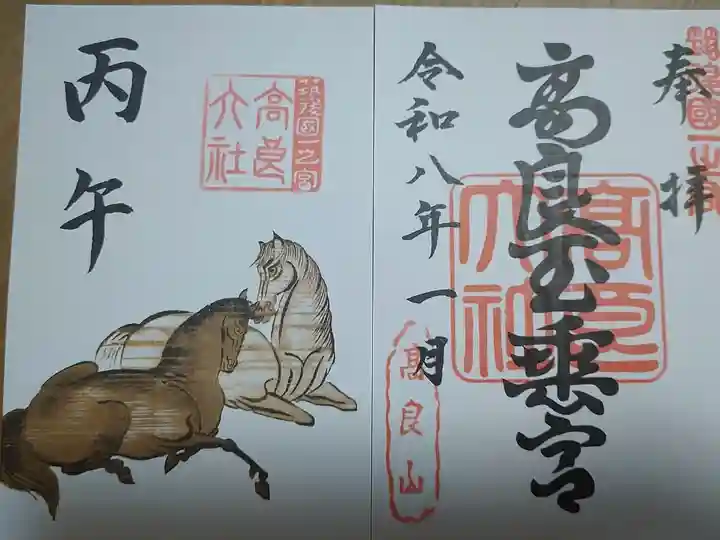 奉拝
高良玉垂宮
高良大社
令和八年一月
高良山
筑後國一之宮
高良大社
丙午